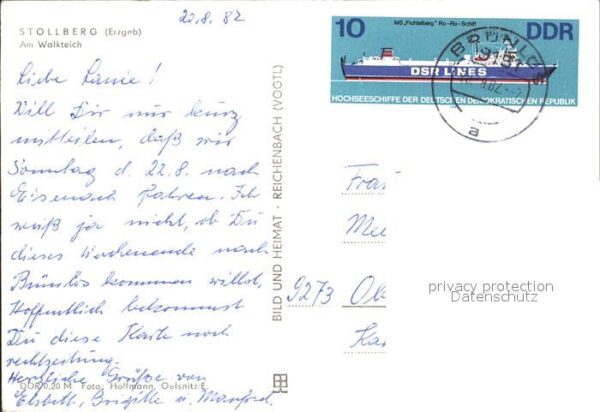 20.8.82
STOLLBERG (Erzgeb)
Am Walkteich
Liebe
Will Dir nur kurz
mitteilen, daß wir
Sonntag d. 22.8. nach
Eisenach fahren. Ich
weiß ja nicht, ob Du
dieses Wochenende nach
Brünlos kommen willst,
Hoffentlich bekommst
Du diese Karte noch
rechtzeitig.
Herzliche Grüße von
Elsbeth, Brigitte u. Manfred.
DDR 0,20 M Foto: Hoffmann, Oelsnitz E.
BILD UND HEIMAT · REICHENBACH (VOGTL)
10 MS „Fichtelberg" Ro-Ro-Schiff DDR
DSR LINES
HOCHSEESCHIFFE DER DEUTSCHEN DEMOKRATISCHEN REPUBLIK
BRÜNLOS
a
Frau
9273
privacy protection
Datenschutz